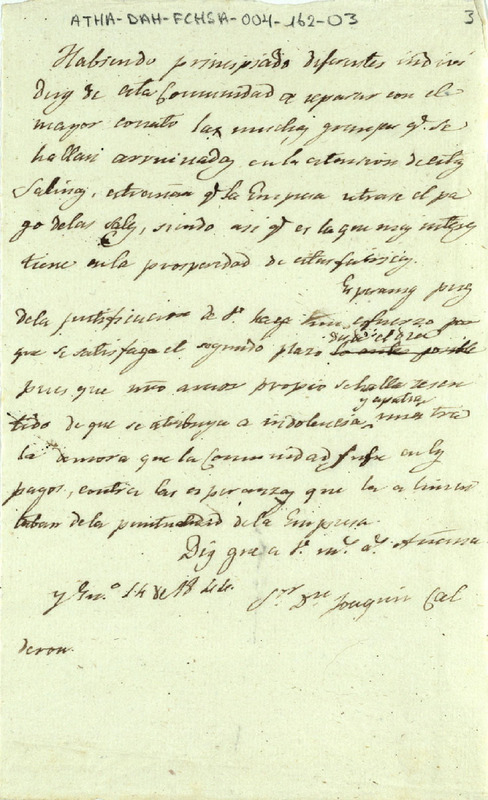 ATHA-DAH-FCHSA-004-162-03
3
Habiendo principiado diferentes indivi
duos de esta Comunidad a reparar con el
mayor conato las muchas granjas q.e se
hallan arruinadas en la estension de estas
Salinas, estrañan q.e la Empresa retrase el pa
go de las Sales, siendo asi q.e es la que mas interes
tiene en la prosperidad de estas fabricas.
Esperamos pues
de la justificacion de V. haga esfuerzo par
que se satisfaga el segundo plazo lo antes posible
pues que nro amor propio se halla resen
tido de que se atribuya a indolencia y apatia nuestra
la demora que la Comunidad sufre en los
pagos, contra las esperanzas que la alimen
taban de la puntualidad de la Empresa.
Dios gue a V. m.s a.s Añana
y En.o 14 de 1844. S.or D.n Joaquin Cal
deron.